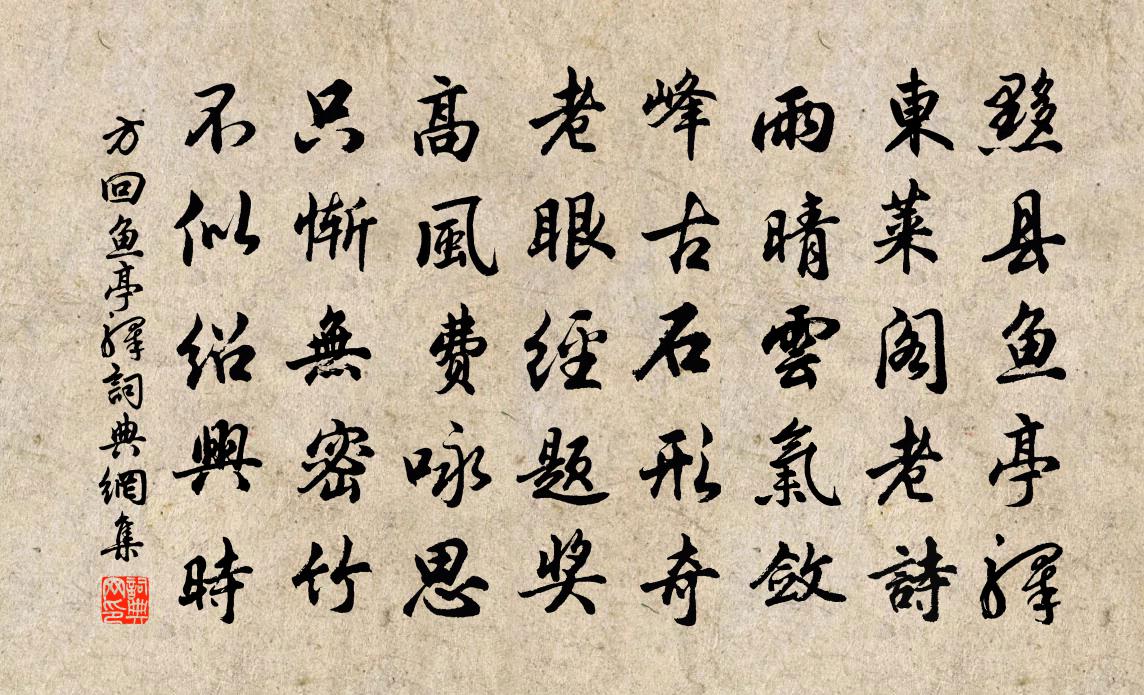 黟县鱼亭驛
東萊阁老詩
雨晴雲氣斂
峰古石形奇
老眼經题奖
高風費咏思
只惭無密竹
不似绍興時
方回鱼亭驛詞典網集
詞典网印